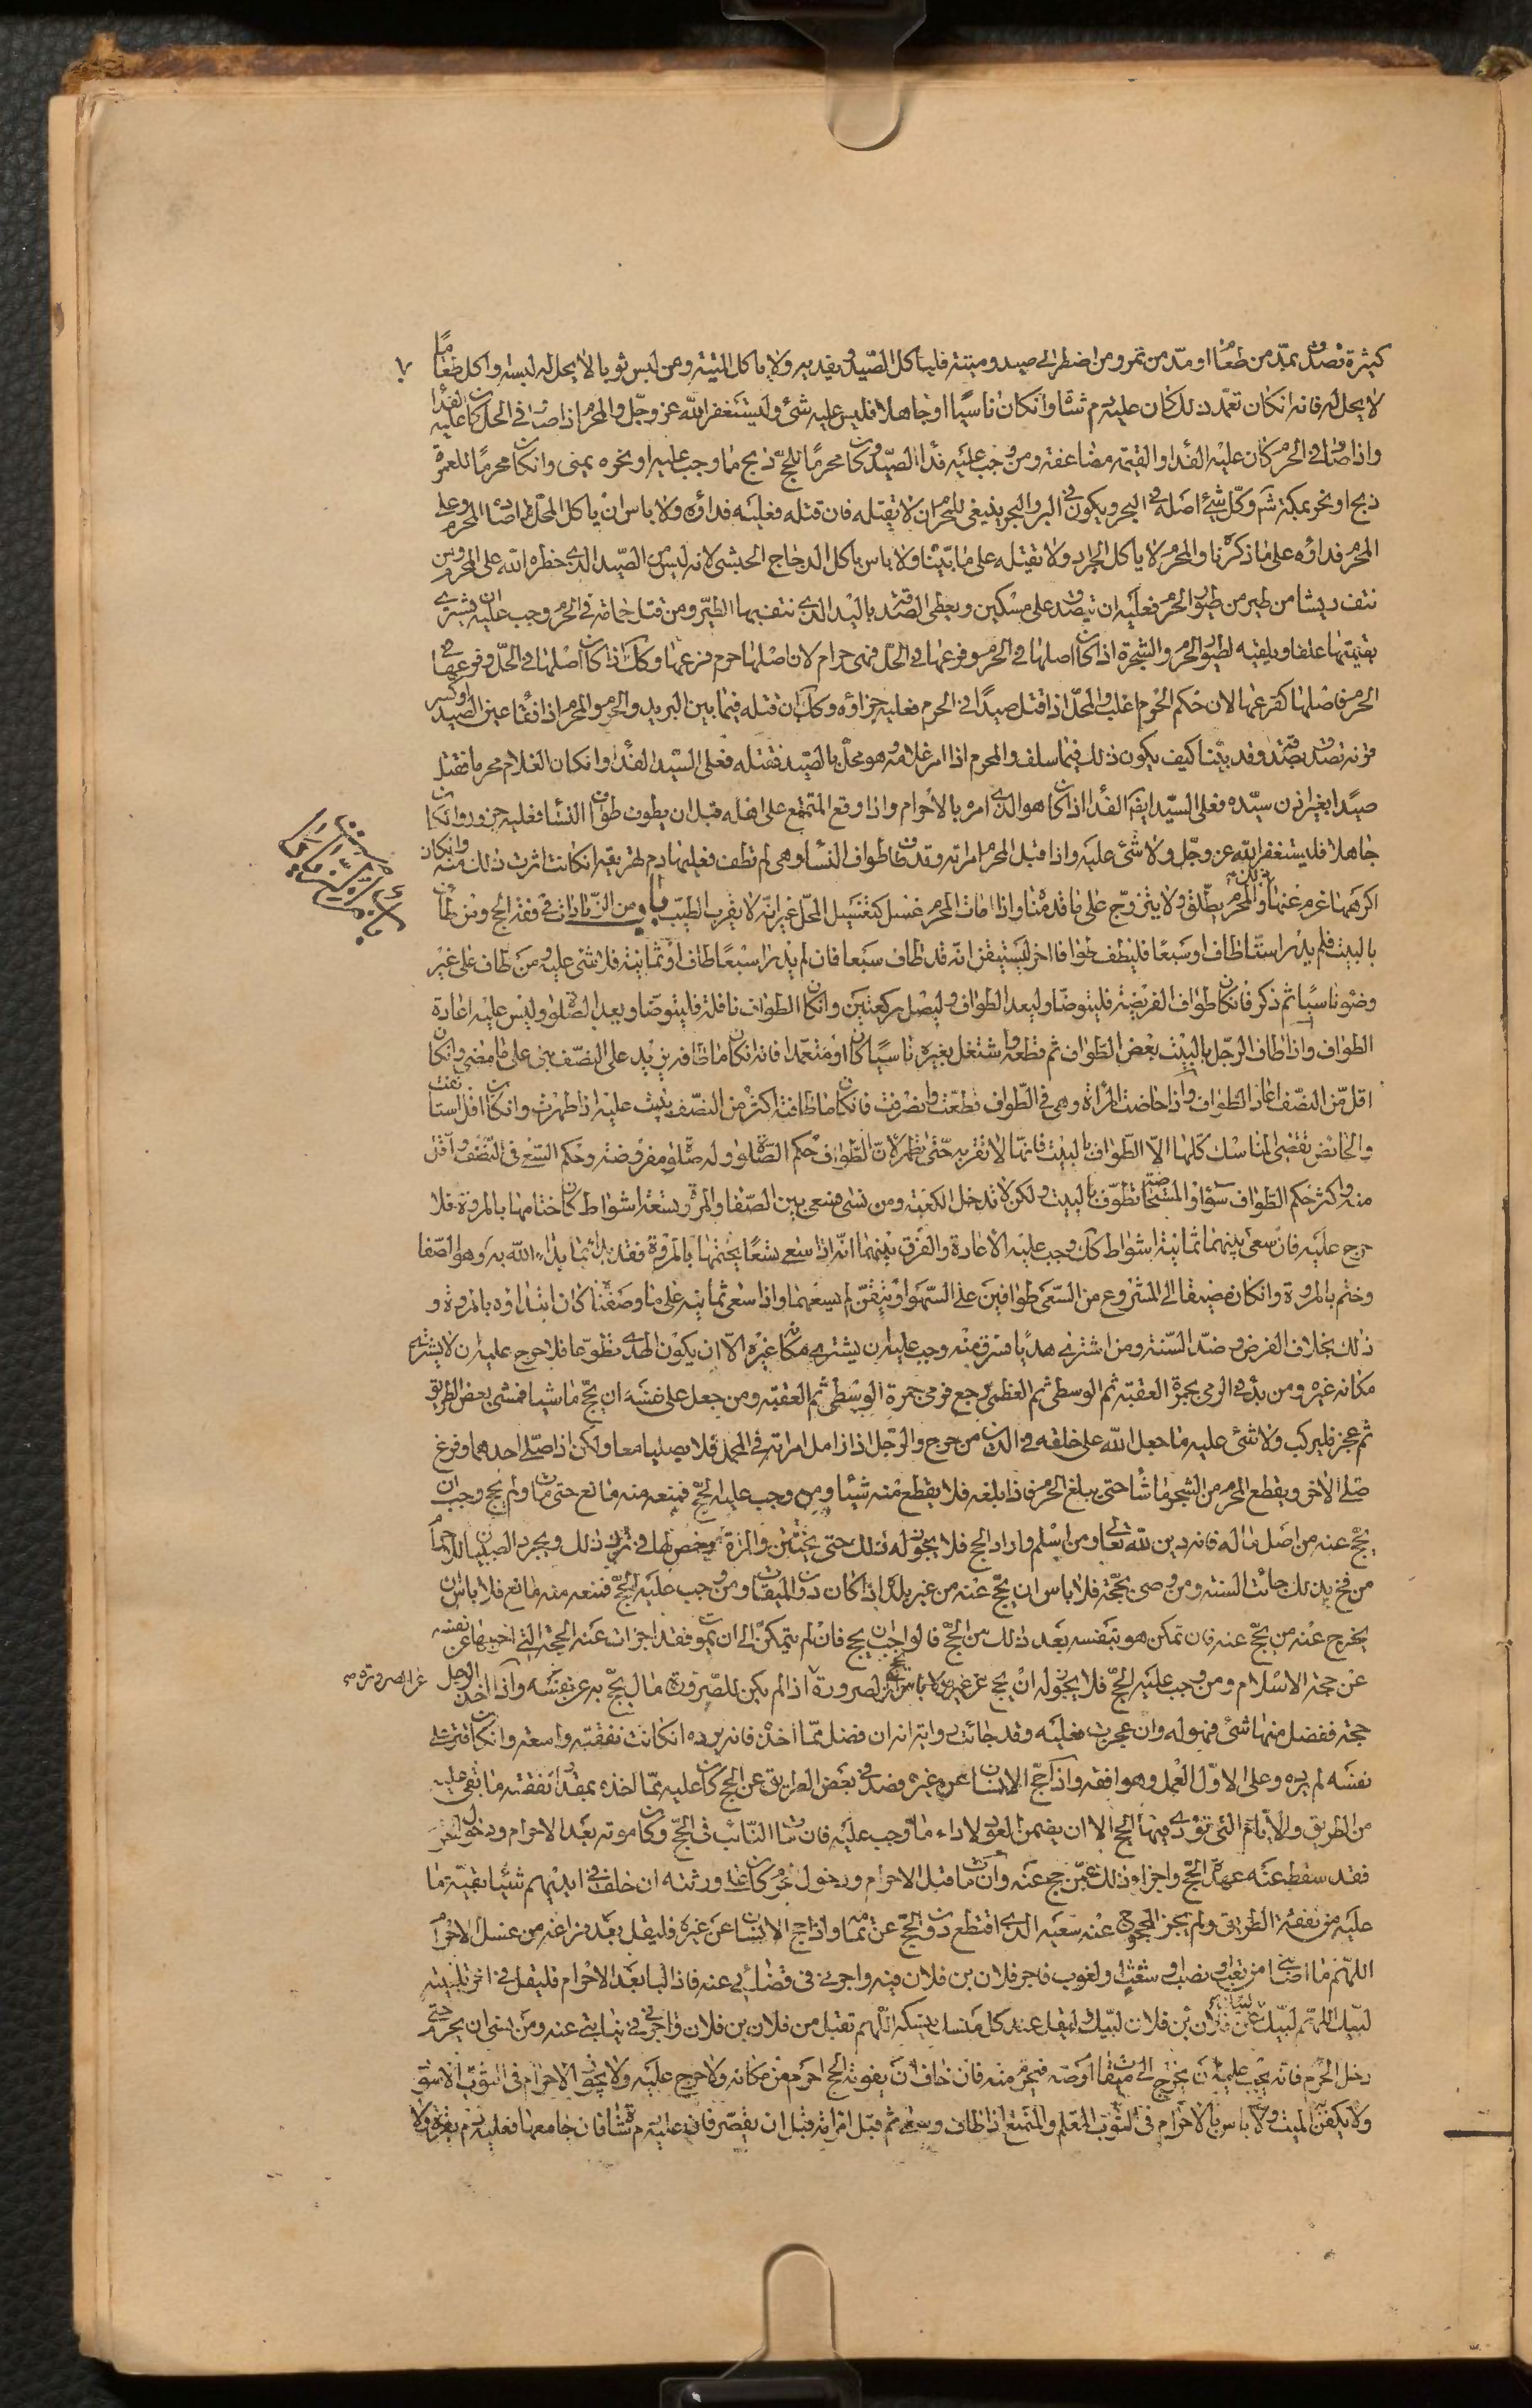 كثيرة تصدق بمد من طعام او مد من تمر ومن اضطر الى صيد وميتة فلياكل الصيد ويفديه ولا ياكل الميتة ومن لبس ثوبا لا يحل له لبسه واكل طعاما
لا يحل له فانه ان كان تعمد ذلك كان عليه دم شاة وان كان ناسيا او جاهلا فليس عليه شئ وليستغفر الله عز وجل والمحرم اذا صاد في الحل كان عليه الفدا
واذا صاد في الحرم كان عليه الفدا والقيمة مضاعفة ومن وجب عليه فدا الصيد وكان محرما للحج ذبح ما وجب عليه او نحره بمنى وان كان محرما للعمرة
ذبح او نحر بمكة ثم وكل شئ اصله في البحر ويكون في البر والبحر ينبغي للمحرم ان لا يقتله فان قتله فعليه فداؤه ولا باس ان ياكل المحل ما صاده المحرم وعلى
المحرم فداؤه على ما ذكرناه والمحرم لا ياكل الجراد ولا يقتله على ما بيناه ولا باس باكل الدجاج الحبشي لانه ليس من الصيد الذي حظره الله على المحرم ومن
نتف ريشا من طير من طيور الحرم فعليه ان يتصدق على مسكين ويعطي الصدقة باليد الذي نتف بها الطير ومن قتل حمامة في الحرم وجب عليه ان يشتري
بقيمتها علفا ويلقيه لطيور الحرم والشجرة اذا كان اصلها في الحرم وفرعها في الحل فهي حرام لان اصلها حرم فرعها وكذلك اذا كان اصلها في الحل وفرعها في
الحرم فاصلها كفرعها لان حكم الحرم اغلب والمحل اذا قتل صيدا في الحرم فعليه جزاؤه وكذلك ان قتله فيما بين البريد والحرم والمحرم اذا فقأ عين الصيد او كسر
قرنه تصدق بصدقة وقد بينا كيف يكون ذلك فيما سلف والمحرم اذا امر غلامه وهو محل بالصيد فقتله فعلى السيد الفدا وان كان الغلام محرما فقتل
صيدا بغير اذن سيده فعلى السيد ايضا الفدا اذا كان هو الذي امره بالاحرام واذا وقع المتمتع على اهله قبل ان يطوف طواف النساء فعليه جزور وان كان
جاهلا فليستغفر الله عز وجل ولا شئ عليه واذا قبل المحرم امراته وقد طاف طواف النساء وهي لم تطف فعليها دم تهريقه ان كانت اثرت ذلك منه وان كان
اكرهها غرم عنها ذلك والمحرم يطلق ولا يتزوج على ما قدمناه واذا مات المحرم غسل كتغسيل المحل غير انه لا يقرب الطيب باب من الزيادات في فقه الحج ومن طاف
بالبيت فلم يدر استا طاف او سبعا فليطف طوافا اخر ليستيقن انه قد طاف سبعا فان لم يدر اسبعا طاف او ثمانية فلا شئ عليه ومن طاف على غير
وضوء ناسيا ثم ذكر فان كان طواف الفريضة فليتوضا وليعد الطواف وليصل ركعتين وان كان الطواف نافلة فليتوضا ويعيد الصلوة وليس عليه اعادة
الطواف واذا طاف الرجل بالبيت بعض الطواف ثم قطعه واشتغل بغيره ناسيا كان او متعمدا فانه ان كان ما طافه يزيد على النصف بنى على ما مضى وان كان
اقل من النصف اعاد الطواف واذا حاضت المراة وهي في الطواف قطعت وانصرفت فان كان ما طافته اكثر من النصف بنيت عليه اذا طهرت وان كان اقل استانفت
والحائض تقضي المناسك كلها الا الطواف بالبيت فانها لا تقربه حتى تطهر لان الطواف حكم الصلوة وله صلوة مفروضة وحكم السعي في النصف واقل
منه واكثر حكم الطواف سواء والمستحاضة تطوف بالبيت ولكن لا تدخل الكعبة ومن نسى فسعى بين الصفا والمروة تسعة اشواط كان ختامها بالمروة فلا
حرج عليه فان سعى بينهما ثمانية اشواط كذلك وجب عليه الاعادة والفرق بينهما انه اذا سعى تسعا يختمها بالمروة فقد بدا بما بدا الله به وهو الصفا
وختم بالمروة وان كان مضيفا الى المشروع من السعي طوافين على السهو او تيقن لم يسعهما واذا سعى ثمانية على ما وصفنا كان ابتداؤه بالمروة و
ذلك بخلاف الفرض وضد السنة ومن اشترى هديا فسرق منه وجب عليه ان يشتري مكانه غيره الا ان يكون الهدي تطوعا فلا حرج عليه ان لا يشتري
مكانه غيره ومن بدا في الرمي بجمرة العقبة ثم الوسطى ثم العظمى رجع فرمى جمرة الوسطى ثم العقبة ومن جعل على نفسه ان يحج ماشيا فمشى بعض الطريق
ثم عجز فليركب ولا شئ عليه ما جعل الله على خلقه في الدين من حرج والرجل اذا زامل امراته في المحمل فلا يصليا معا ولكن اذا صلى احدهما وفرغ
صلى الاخر ويقطع المحرم من الشجر ما شاء حتى يبلغ الحرم فاذا بلغه فلا يقطع منه شيئا ومن وجب عليه الحج فمنعه منه مانع حتى مات ولم يحج وجب ان
يحج عنه من اصل ماله فانه دين لله تعالى ومن اسلم واراد الحج فلا يجوز له ذلك حتى يختتن والمراة مرخص لها في ترك ذلك ويجرد الصبيان للاحرام
من فخ بذلك جائت السنة ومن وصى بحجة فلا باس ان يحج عنه من غير بلده اذا كان دون الميقات ومن وجب عليه الحج فمنعه منه مانع فلا باس ان
يخرج عنه من يحج عنه فان تمكن هو بنفسه بعد ذلك من الحج فالواجب ان يحج فان لم يتمكن الى ان يموت فقد اجزات عنه الحجة التي اخرجها عن نفسه
عن حجة الاسلام ومن وجب عليه الحج فلا يجوز له ان يحج عن غيره ولا باس ان يحج الصرورة اذا لم يكن للصرورة مال يحج به عن نفسه واذا اخذ الرجل
عن الصرورة صح
حجة ففضل منها شئ فهو له وان عجزت فعليه وقد جائت رواية انه ان فضل مما اخذه فانه يرده ان كانت نفقته واسعة وان كان قتر على
نفسه لم يرده وعلى الاول العمل وهو افقه واذا حج الانسان عن غيره فصد في بعض الطريق عن الحج كان عليه مما اخذه بمقدار نفقة ما بقى عليه
من الطريق والايام التي تؤدى فيها الحج الا ان يضمن العود لاداء ما وجب عليه فان مات النائب في الحج وكان موته بعد الاحرام ودخول الحرم
فقد سقط عنه عهدة الحج واجزا ذلك عمن حج عنه وان مات قبل الاحرام ودخول الحرم كان على ورثته ان خلف في ايديهم شيئا بقية ما
عليه من نفقة الطريق ولم يجز المحجوج عنه سعيه الذي اقتطع دون الحج عن تمامه واذا حج الانسان عن غيره فليقل بعد فراغه من غسل الاحرام
اللهم ما اصابني من تعب او نصب او شعث او لغوب فاجر فلان بن فلان فيه واجرني في قضائي عنه فاذا لبا بعد الاحرام فليقل في اخر تلبيته
لبيك اللهم لبيك عن فلان بن فلان لبيك وليقل عند كل منسك ينسكه اللهم تقبل من فلان بن فلان واجرني في نيابتي عنه ومن نسى ان يحرم حتى
دخل الحرم فانه يجب عليه ان يخرج الى ميقات ارضه فيحرم منه فان خاف ان يفوته الحج احرم من مكانه ولا حرج عليه ولا يجوز الاحرام في الثوب الاسود
ولا يكفن الميت ولا باس بالاحرام في الثوب المعلم والمتمتع اذا طاف وسعى ثم قبل امراته قبل ان يقصر فان عليه دم شاة فان جامعها فعليه دم بقرة ولا